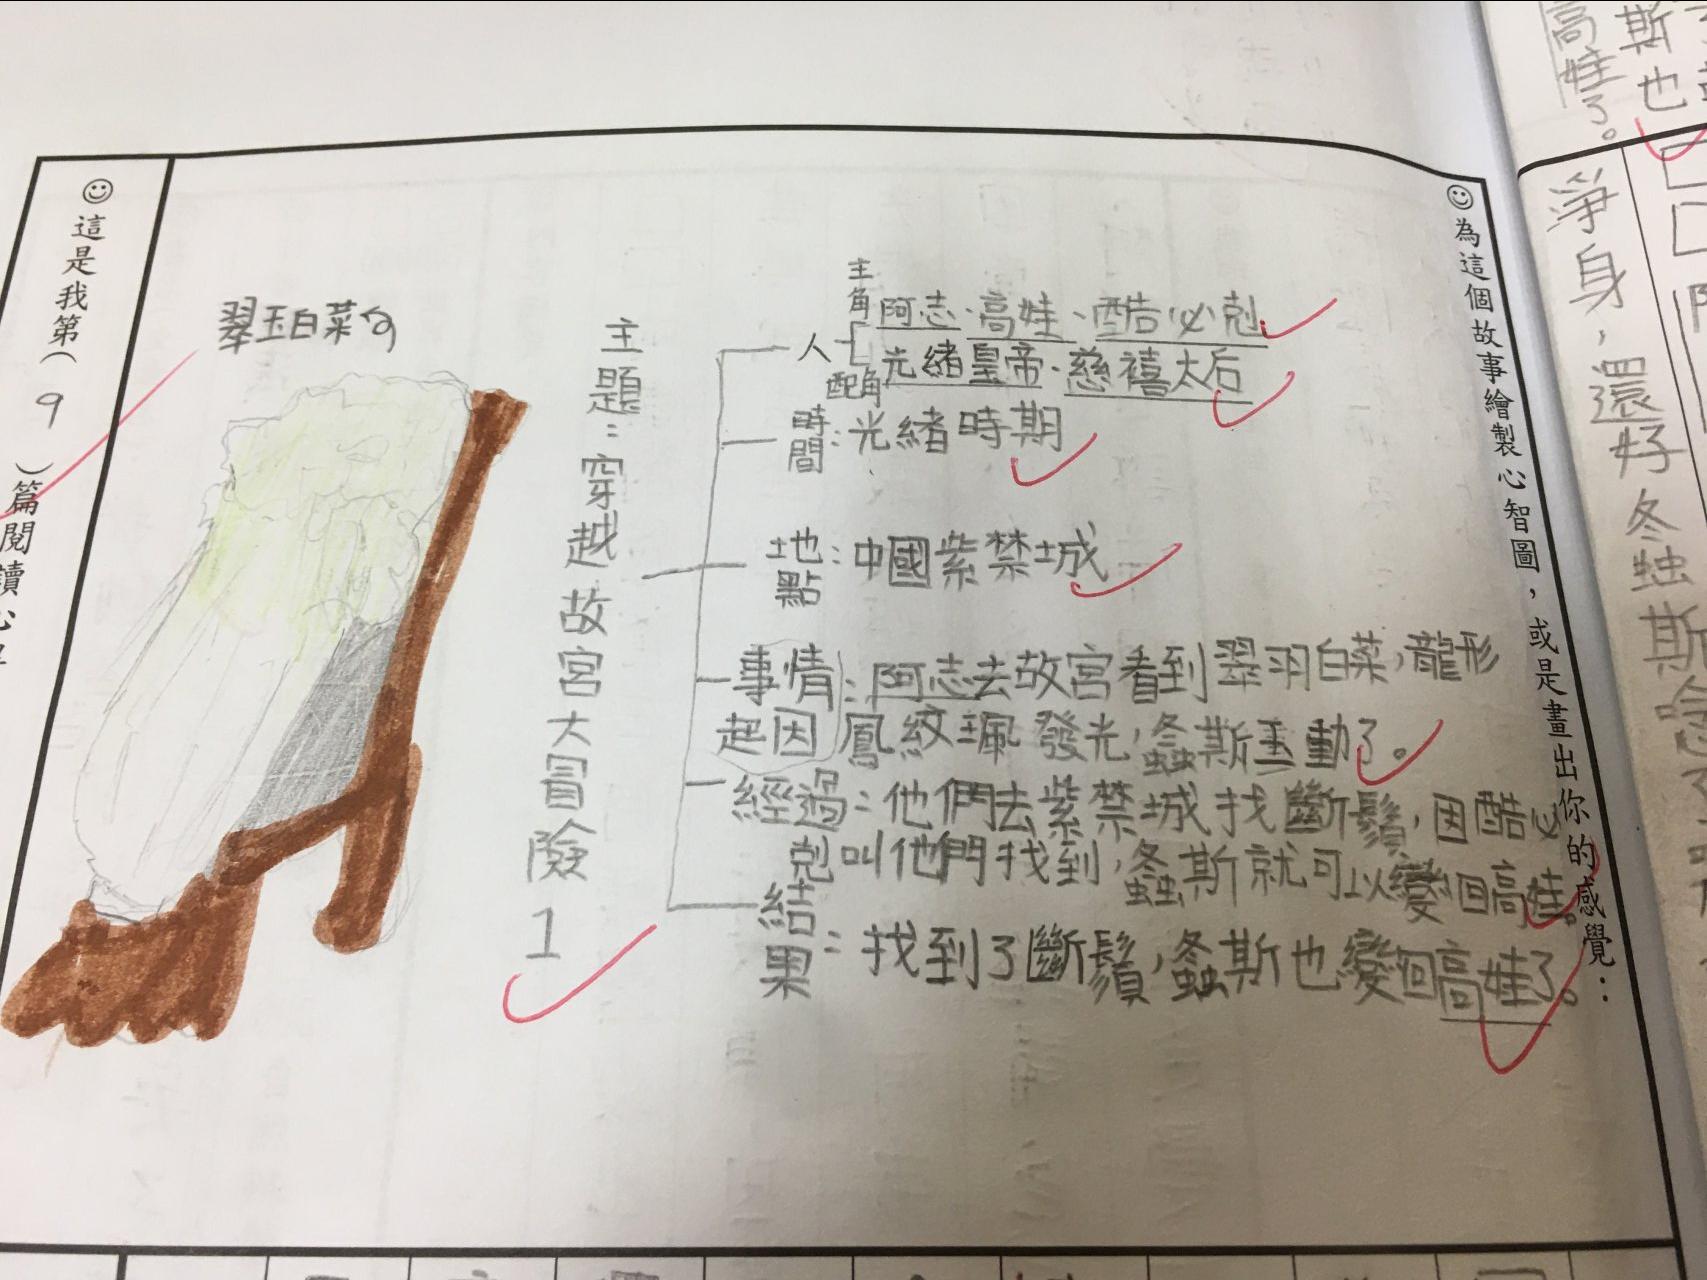 高娃了。
斯也
淨身，還好冬蟲斯
☺為這個故事繪製心智圖，或是畫出你的感覺：
主角
阿志、高娃、酷必剋
人
配角
光緒皇帝、慈禧太后
時間：光緒時期
地點：中國紫禁城
事情起因：阿志去故宮看到翠羽白菜，龍形
鳳紋珮發光，螽斯玉動了。
經過：他們去紫禁城找斷鬚，因酷必
剋叫他們找到，螽斯就可以變回高娃。
結果：找到了斷鬚，螽斯也變回高娃了。
主題：穿越故宮大冒險1
翠玉白菜
☺這是我第（9）篇閱讀心